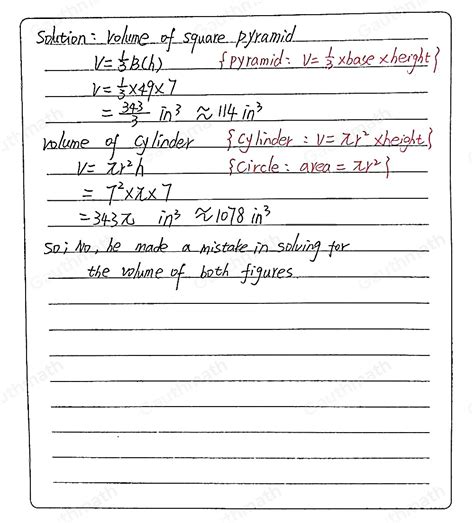 Solution: Volume of square pyramid
V=⅓B(h) {pyramid: V=⅓×base×height}
V=⅓×49×7
=343/3 in³ ≈114 in³
volume of cylinder {cylinder: V=πr²×height}
V=πr²h {circle: area=πr²}
=7²×π×7
=343π in³ ≈1078 in³
So; No, he made a mistake in solving for
the volume of both figures